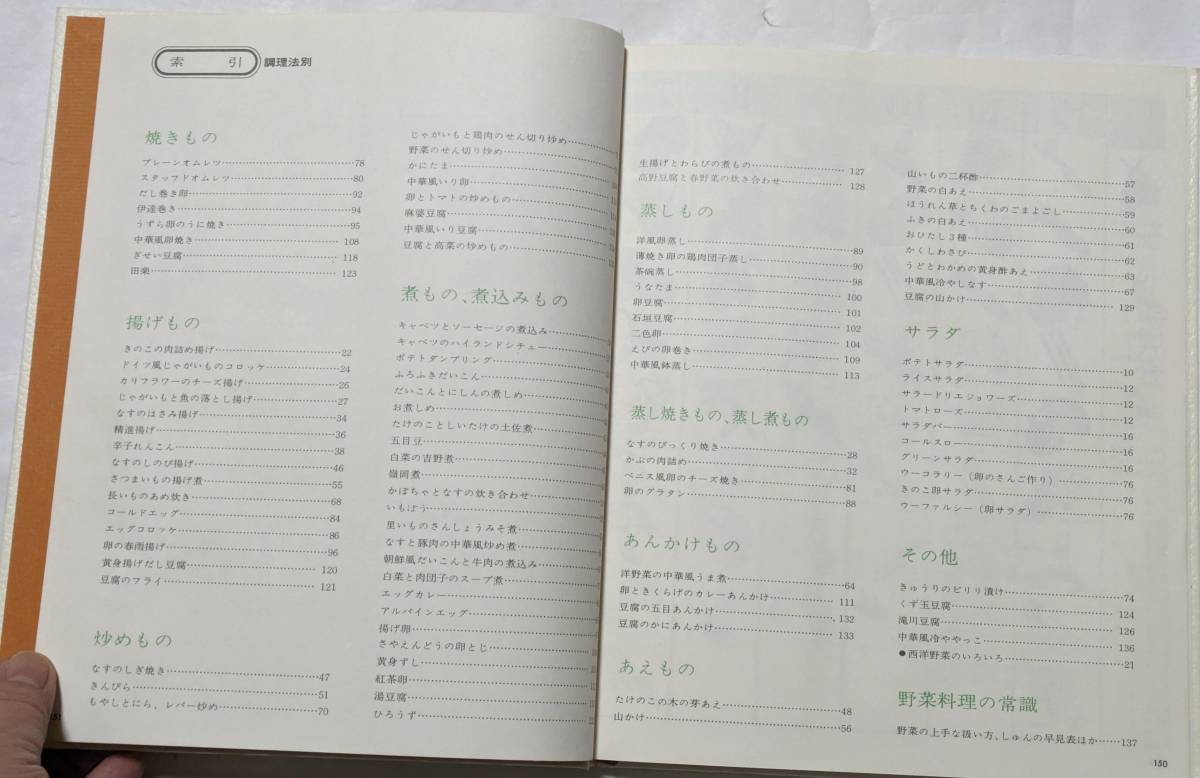 索引 調理法別
焼きもの
プレーンオムレツ……78
スタッフドオムレツ……80
だし巻き卵……92
伊達巻き……94
うずら卵のうに焼き……95
中華風卵焼き……108
ぎせい豆腐……118
田楽……123
揚げもの
きのこの肉詰め揚げ……22
ドイツ風じゃがいものコロッケ……24
カリフラワーのチーズ揚げ……26
じゃがいもと魚の落とし揚げ……27
なすのはさみ揚げ……34
精進揚げ……36
辛子れんこん……38
なすのしのび揚げ……46
さつまいもの揚げ煮……55
長いものあめ炊き……68
コールドエッグ……84
エッグコロッケ……86
卵の春雨揚げ……96
黄身揚げだし豆腐……120
豆腐のフライ……121
炒めもの
なすのしぎ焼き……47
きんぴら……51
もやしとにら、レバー炒め……70
じゃがいもと鶏肉のせん切り炒め……
野菜のせん切り炒め……
かにたま……
中華風いり卵……
卵とトマトの炒めもの……
麻婆豆腐……
中華風いり豆腐……
豆腐と高菜の炒めもの……
煮もの、煮込みもの
キャベツとソーセージの煮込み……
キャベツのハイランドシチュー……
ポテトダンプリング……
ふろふきだいこん……
だいこんとにしんの煮しめ……
お煮しめ……
たけのことしいたけの土佐煮……
五目豆……
白菜の吉野煮……
嶺岡煮……
かぼちゃとなすの炊き合わせ……
いもぼう……
里いものさんしょうみそ煮……
なすと豚肉の中華風炒め煮……
朝鮮風だいこんと牛肉の煮込み……
白菜と肉団子のスープ煮……
エッグカレー……
アルパインエッグ……
揚げ卵……
さやえんどうの卵とじ……
黄身ずし……
紅茶卵……
湯豆腐……
ひろうず……
生揚げとわらびの煮もの……127
高野豆腐と春野菜の炊き合わせ……128
蒸しもの
洋風卵蒸し……89
薄焼き卵の鶏肉団子蒸し……90
茶碗蒸し……98
うなたま……100
卵豆腐……101
石垣豆腐……102
二色卵……104
えびの卵巻き……109
中華風鉢蒸し……113
蒸し焼きもの、蒸し煮もの
なすのびっくり焼き……28
かぶの肉詰め……32
ベニス風卵のチーズ焼き……81
卵のグラタン……88
あんかけもの
洋野菜の中華風うま煮……64
卵ときくらげのカレーあんかけ……111
豆腐の五目あんかけ……132
豆腐のかにあんかけ……133
あえもの
たけのこの木の芽あえ……48
山かけ……56
山いもの二杯酢……57
野菜の白あえ……58
ほうれん草とちくわのごまよごし……59
ふきの白あえ……60
おひたし3種……61
かくしわさび……62
うどとわかめの黄身酢あえ……63
中華風冷やしなす……67
豆腐の山かけ……129
サラダ
ポテトサラダ……10
ライスサラダ……12
サラードリエジョワーズ……12
トマトローズ……12
サラダバー……16
コールスロー……16
グリーンサラダ……16
ウーコラリー（卵のさんご作り）……76
きのこ卵サラダ……76
ウーファルシー（卵サラダ）……76
その他
きゅうりのピリリ漬け……74
くず玉豆腐……124
滝川豆腐……126
中華風冷ややっこ……136
●西洋野菜のいろいろ……21
野菜料理の常識
野菜の上手な扱い方、しゅんの早見表ほか……137
150